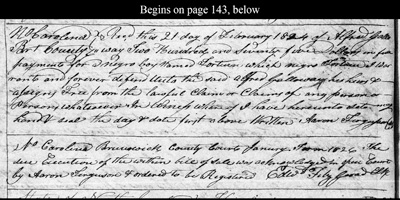 Begins on page 143, below
No Carolina Recd this 21 day of February 1824 of Alfred
County & way Two Hundred and Seventy five Dollars in full
payment for a Negro boy named Fortune which negro I war
rants and forever defend unto the said Alfred Galloway his heirs &
assigns Free from the lawful Claim or Claims of any person or
Persons whatsoever In Witness whereof I have hereunto set my
hand & seal the day & date first above Written Aaron Ferguson
No Carolina Brunswick County Court January Term 1826 The
due Execution of the within bill of sale was acknowledged in open Court
by Aaron Ferguson & ordered to be Registered